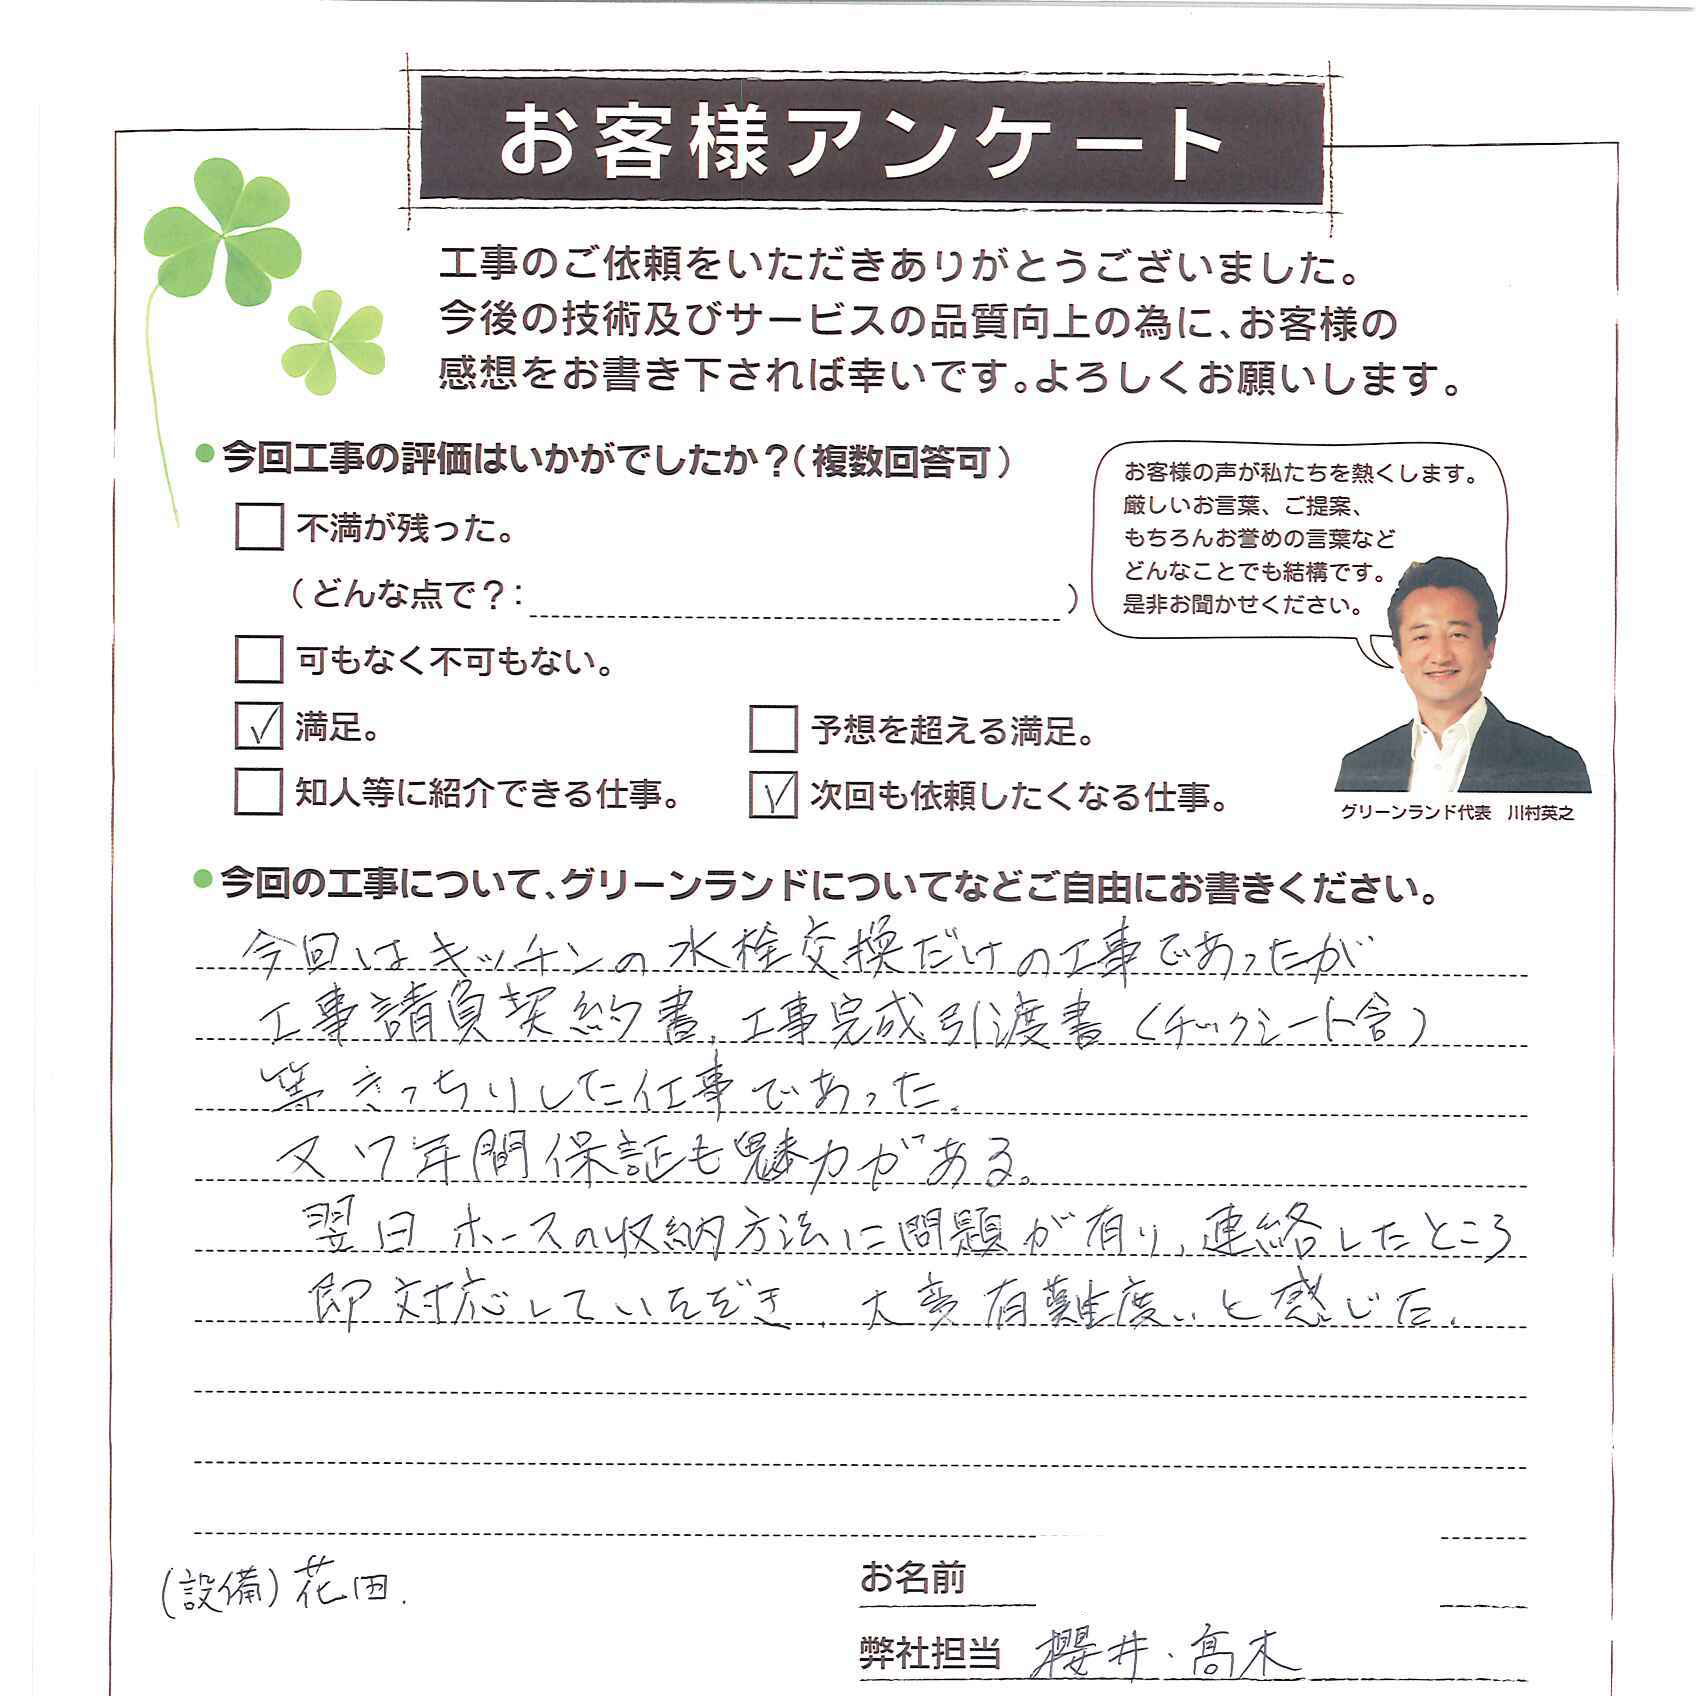 お客様アンケート
工事のご依頼をいただきありがとうございました。
今後の技術及びサービスの品質向上の為に、お客様の
感想をお書き下されば幸いです。よろしくお願いします。
●今回工事の評価はいかがでしたか？（複数回答可）
不満が残った。
（どんな点で？：　）
可もなく不可もない。
満足。
予想を超える満足。
知人等に紹介できる仕事。
次回も依頼したくなる仕事。
お客様の声が私たちを熱くします。
厳しいお言葉、ご提案、
もちろんお誉めの言葉など
どんなことでも結構です。
是非お聞かせください。
グリーンランド代表　川村英之
●今回の工事について、グリーンランドについてなどご自由にお書きください。
今回はキッチンの水栓交換だけの工事であったが
工事請負契約書、工事完成引渡書（チックシート含）
等きっちりした仕事であった。
又17年間保証も魅力がある。
翌日ホースの収納方法に問題が有り、連絡したところ
即対応していただき、大変有難度いと感じた。
（設備）花田.
お名前
弊社担当　櫻井・高木